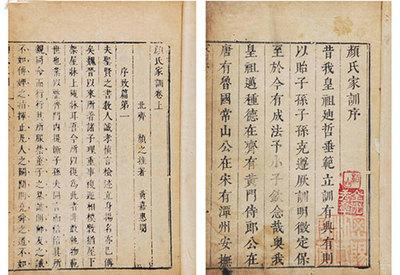 顏氏家訓序
昔我皇祖迪哲垂範立訓有典有則
以貽子孫子孫克遵厥訓明徵定保
至於今有成法予小子欽念哉奥我
皇祖邁種德在齊有黃門侍郎公在
唐有魯國常山公在宋有潭州安撫
顏氏家訓卷上
北齊 顏之推著 黃嘉惠閱
序致篇第一
夫聖賢之書教人誠孝慎言檢迹立身揚名亦已備
矣魏晉以來所著諸子理重事複遞相模斆猶屋下
架屋牀上施牀耳吾今所以復為此者非敢軌物範
世也業以整齊門內提撕子孫夫同言而信信其所
親同命而行行其所服禁童子之暴謔則師友之誡
不如傅婢之指揮止凡人之鬭鬩則堯舜之道不如